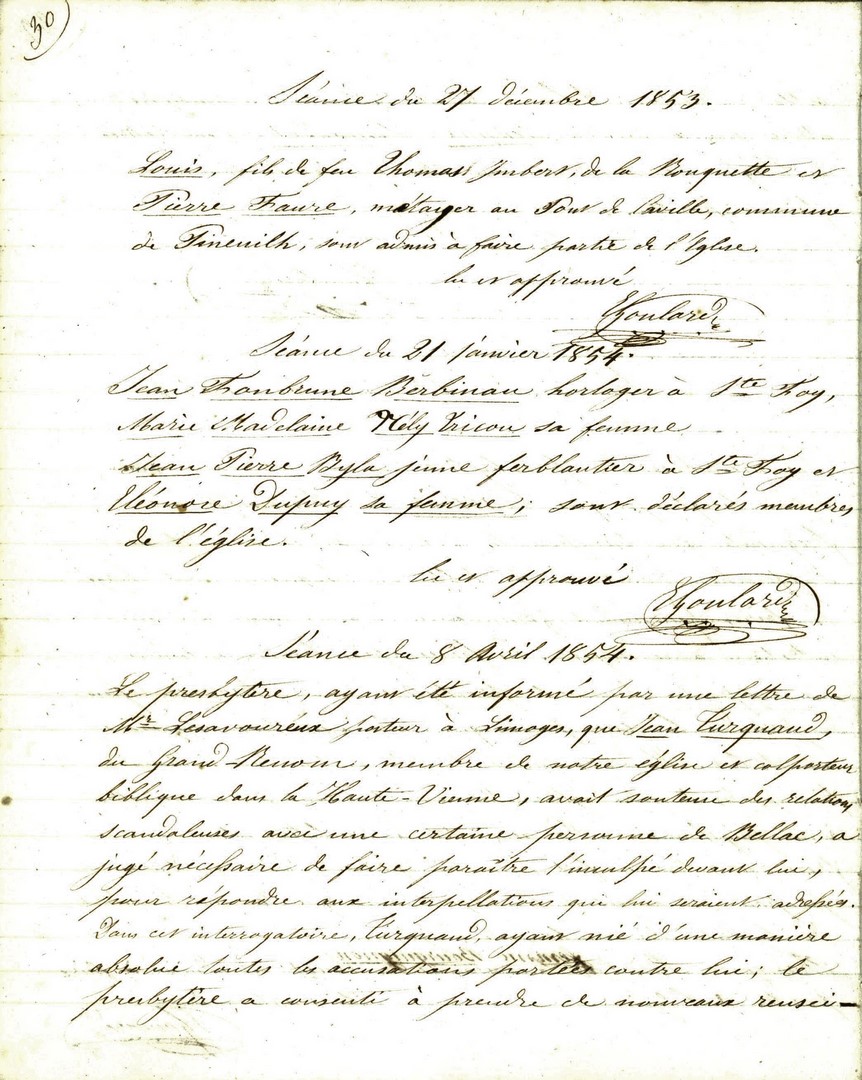 30
Séance du 27 décembre 1853.
Louis, fils de feu Thomas Imbert, de la Rouquette et
Pierre Faure, métayer au Pont de Laville, commune
de Pineuilh, sont admis à faire partie de l'Eglise.
lu et approuvé
EGoulard
Séance du 21 janvier 1854.
Jean Fonbrune Berbinau horloger à Ste Foy,
Marie Madelaine Nély Tricou sa femme
Jean Pierre Byla jeune ferblantier à Ste Foy et
Eléonore Dupuy sa femme; sont déclarés membres
de l'église.
lu et approuvé
EGoulard
Séance du 8 Avril 1854.
Le presbytère, ayant été informé par une lettre de
Mr Lesavoureux pasteur à Limoges, que Jean Turquaud,
du Grand Renom, membre de notre église et colporteur
biblique dans la Haute-Vienne, avait soutenu des relations
scandaleuses avec une certaine personne de Bellac, a
jugé nécessaire de faire paraître l'inculpé devant lui,
pour répondre aux interpellations qui lui seraient adressées.
Dans cet interrogatoire, Turquaud, ayant nié d'une manière
absolue toutes les accusations portées contre lui; le
presbytère a consenti à prendre de nouveaux rensei-